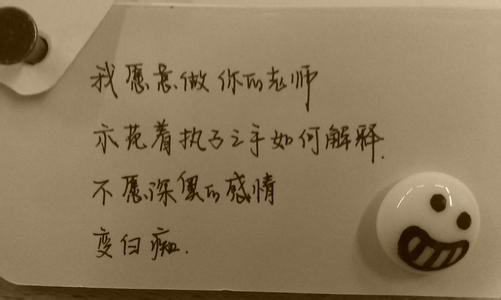 我愿意做你的老师
示范着执子之手如何解释.
不愿深奥的感情
变白痴.